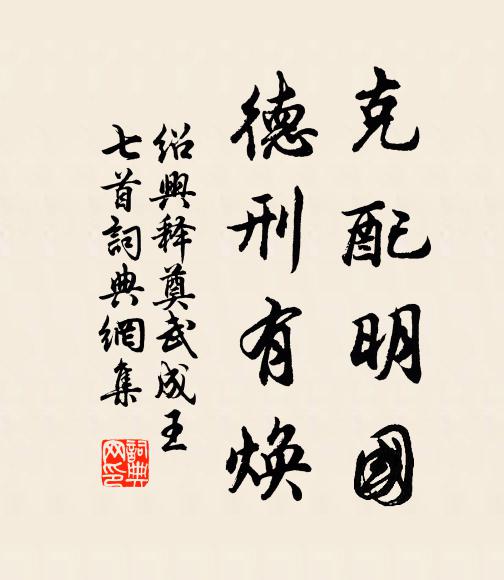 克配明國
德刑有煥
绍興释奠武成王
七首詞典網集
詞典
网印